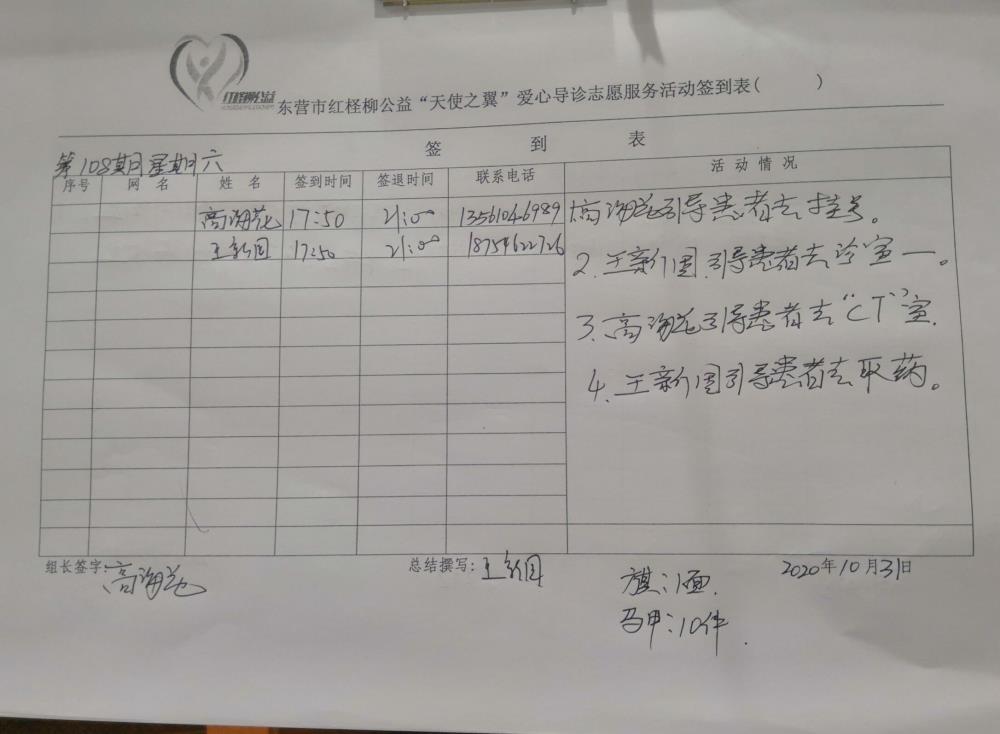 红柽柳公益
东营市红柽柳公益“天使之翼”爱心导诊志愿服务活动签到表( )
签 到 表
第108期星期六
序号 网 名 姓 名 签到时间 签退时间 联系电话 活 动 情 况
高海花 17:50 21:00 13561046989
王新国 17:50 21:00 18754622726
1.高海花引导患者去挂号。
2.王新国引导患者去诊室一。
3.高海花引导患者去“CT”室.
4.王新国引导患者去取药。
组长签字:高海花 总结撰写:王新国 2020年10月31日
旗:1面.
马甲:10件.